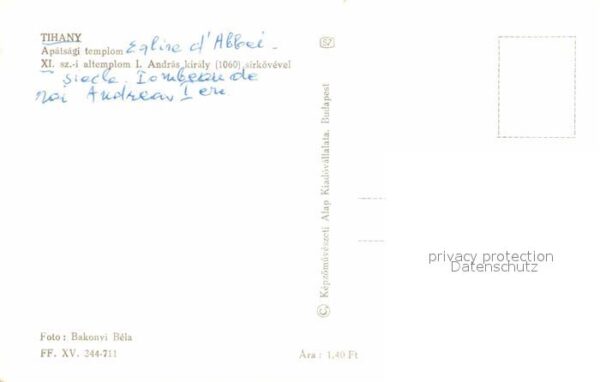 TIHANY
Apátsági templom Eglise d'Abbei.
XI. sz.-i altemplom I. András király (1060) sírkövével
siecle. Tombeau de
roi Andreas Ier.
SZ
© Képzőművészeti Alap Kiadóvállalata, Budapest
privacy protection
Datenschutz
Foto: Bakonyi Béla
FF. XV. 244-711
Ára: 1,40 Ft